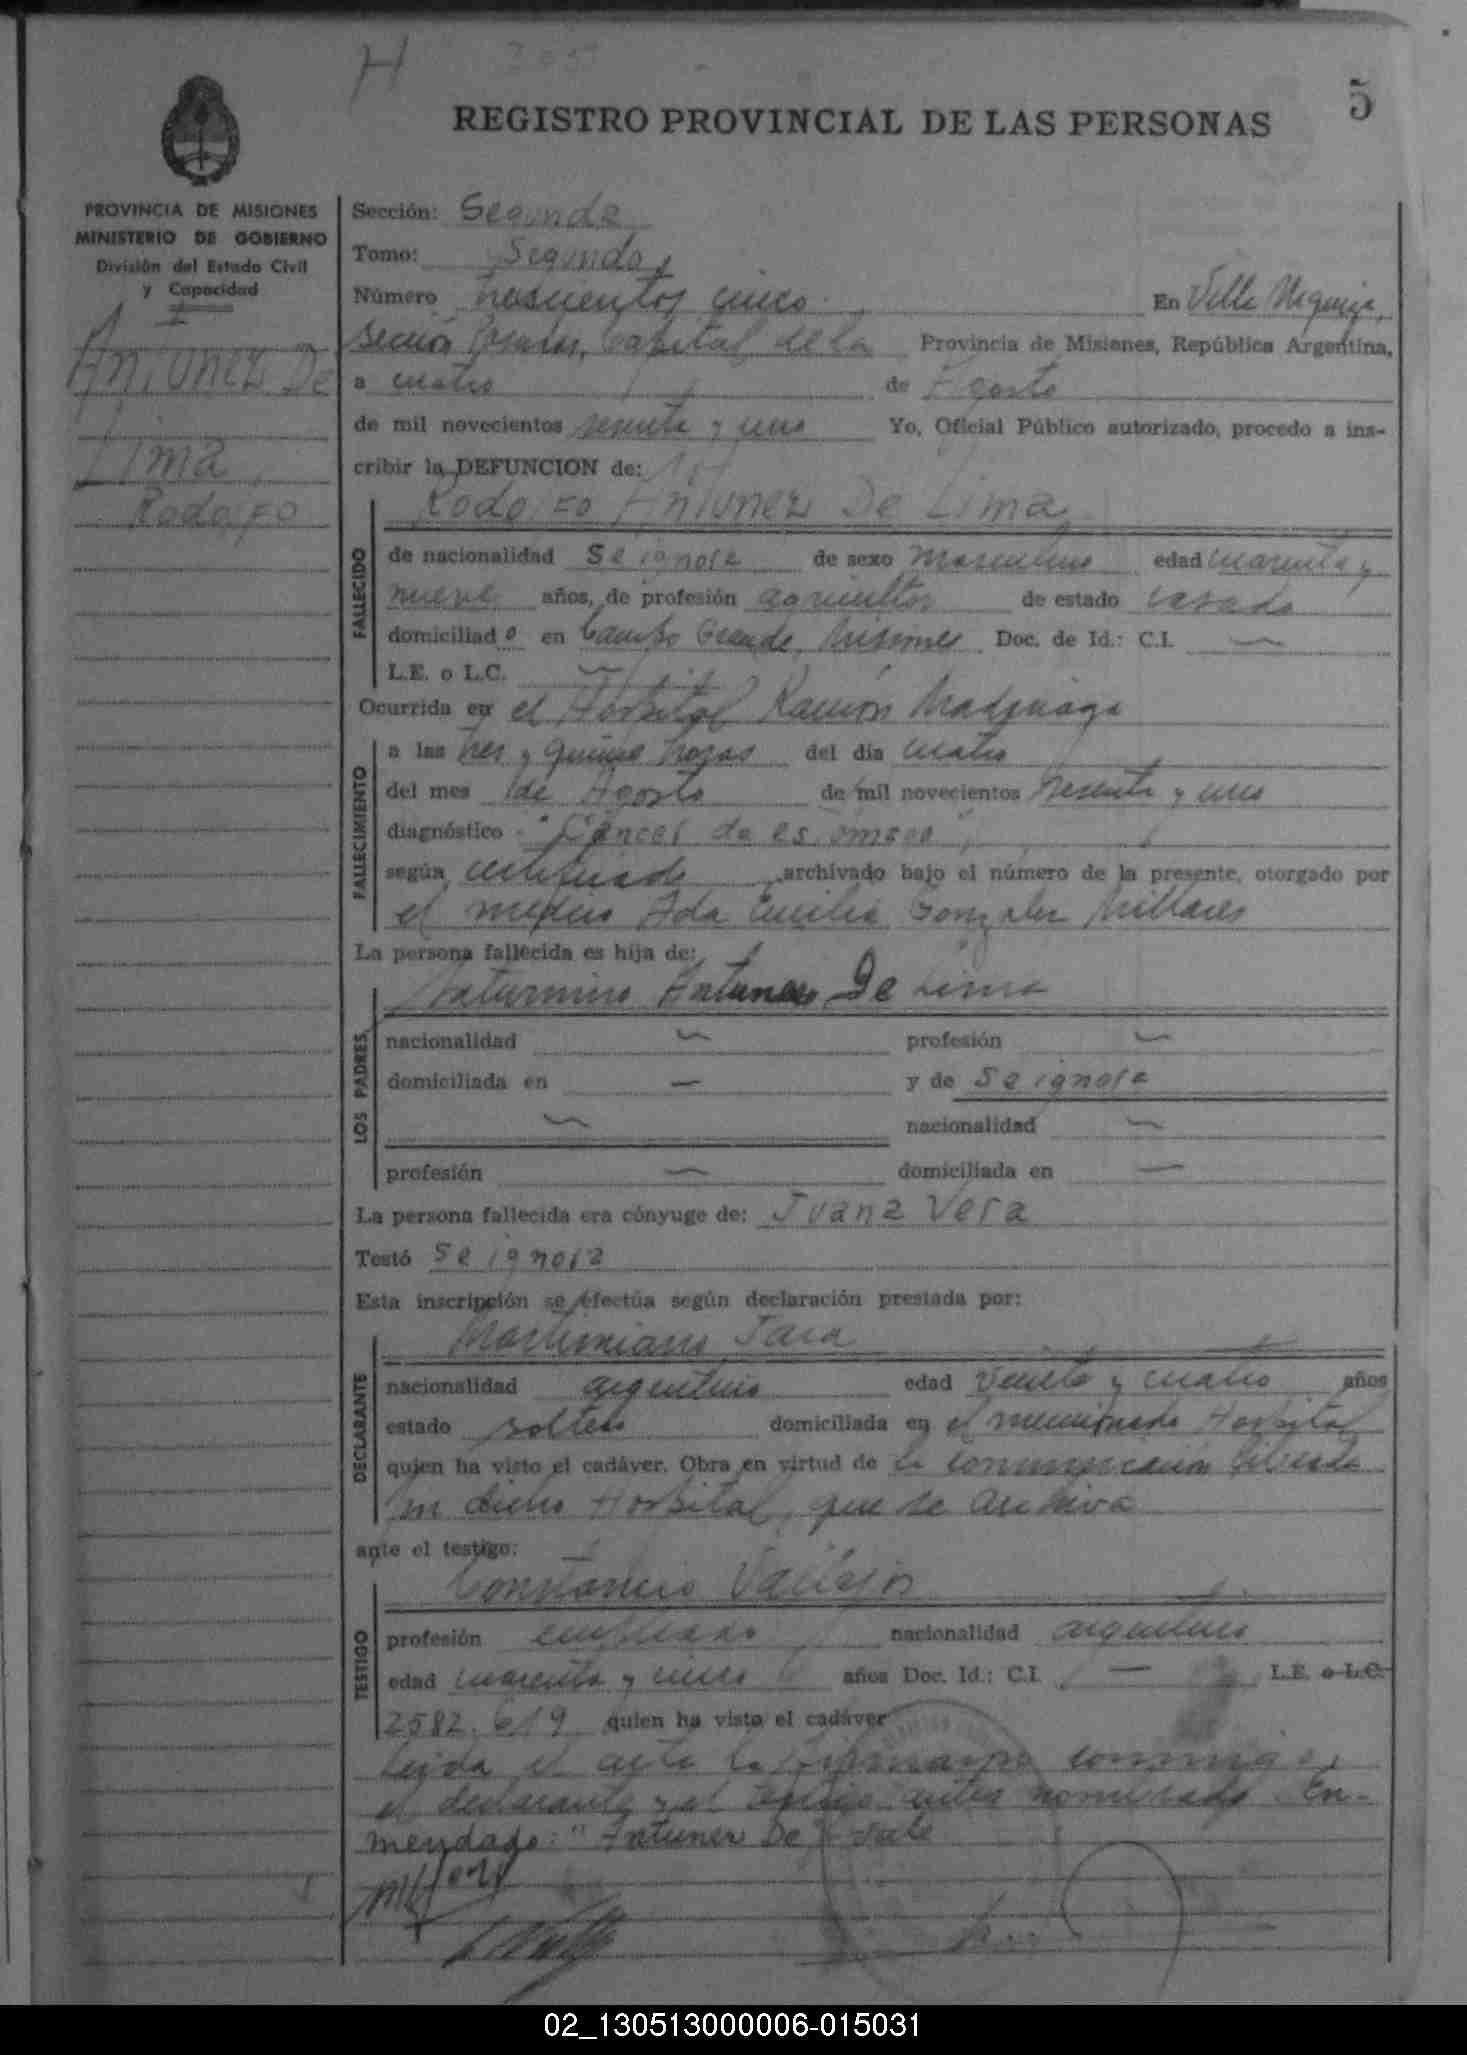 H 305
REGISTRO PROVINCIAL DE LAS PERSONAS
5
PROVINCIA DE MISIONES
MINISTERIO DE GOBIERNO
División del Estado Civil
y Capacidad
Antunez De
Lima
Rodolfo
Sección: Segunda
Tomo: Segundo
Número trescientos cinco En Villa Urquiza,
sección Posadas, Capital de la Provincia de Misiones, República Argentina,
a cuatro de Agosto
de mil novecientos sesenta y uno Yo, Oficial Público autorizado, procedo a ins-
cribir la DEFUNCION de:
Rodolfo Antunez De Lima
FALLECIDO
de nacionalidad Se ignora de sexo masculino edad cuarenta y
nueve años, de profesión agricultor de estado casado
domiciliado en Campo Grande, Misiones Doc. de Id.: C.I. —
L.E. o L.C. —
Ocurrida en el Hospital Ramón Madariaga
FALLECIMIENTO
a las tres y quince horas del día cuatro
del mes de Agosto de mil novecientos sesenta y uno
diagnóstico "Cáncer de estómago",
según certificado archivado bajo el número de la presente, otorgado por
el médico Ada Emilia Gonzalez Millares
La persona fallecida es hija de:
Saturnino Antunez De Lima
LOS PADRES
nacionalidad — profesión —
domiciliada en — y de Se ignora
— nacionalidad —
profesión — domiciliada en —
La persona fallecida era cónyuge de: Juana Vera
Testó Se ignora
Esta inscripción se efectúa según declaración prestada por:
Martiniano Jara
DECLARANTE
nacionalidad argentino edad veinte y cuatro años
estado soltero domiciliada en el mencionado Hospital
quien ha visto el cadáver. Obra en virtud de la comunicación librada
en dicho Hospital, que se archiva
ante el testigo:
Constancio Vallejos
TESTIGO
profesión empleado nacionalidad argentino
edad cuarenta y cinco años Doc. Id.: C.I. — L.E. o L.C.
2582.619 quien ha visto el cadáver
Leida el acta la firmaron conmigo,
el declarante y el testigo antes nombrado. En-
mendado: "Antunez De" Vale
02_130513000006-015031